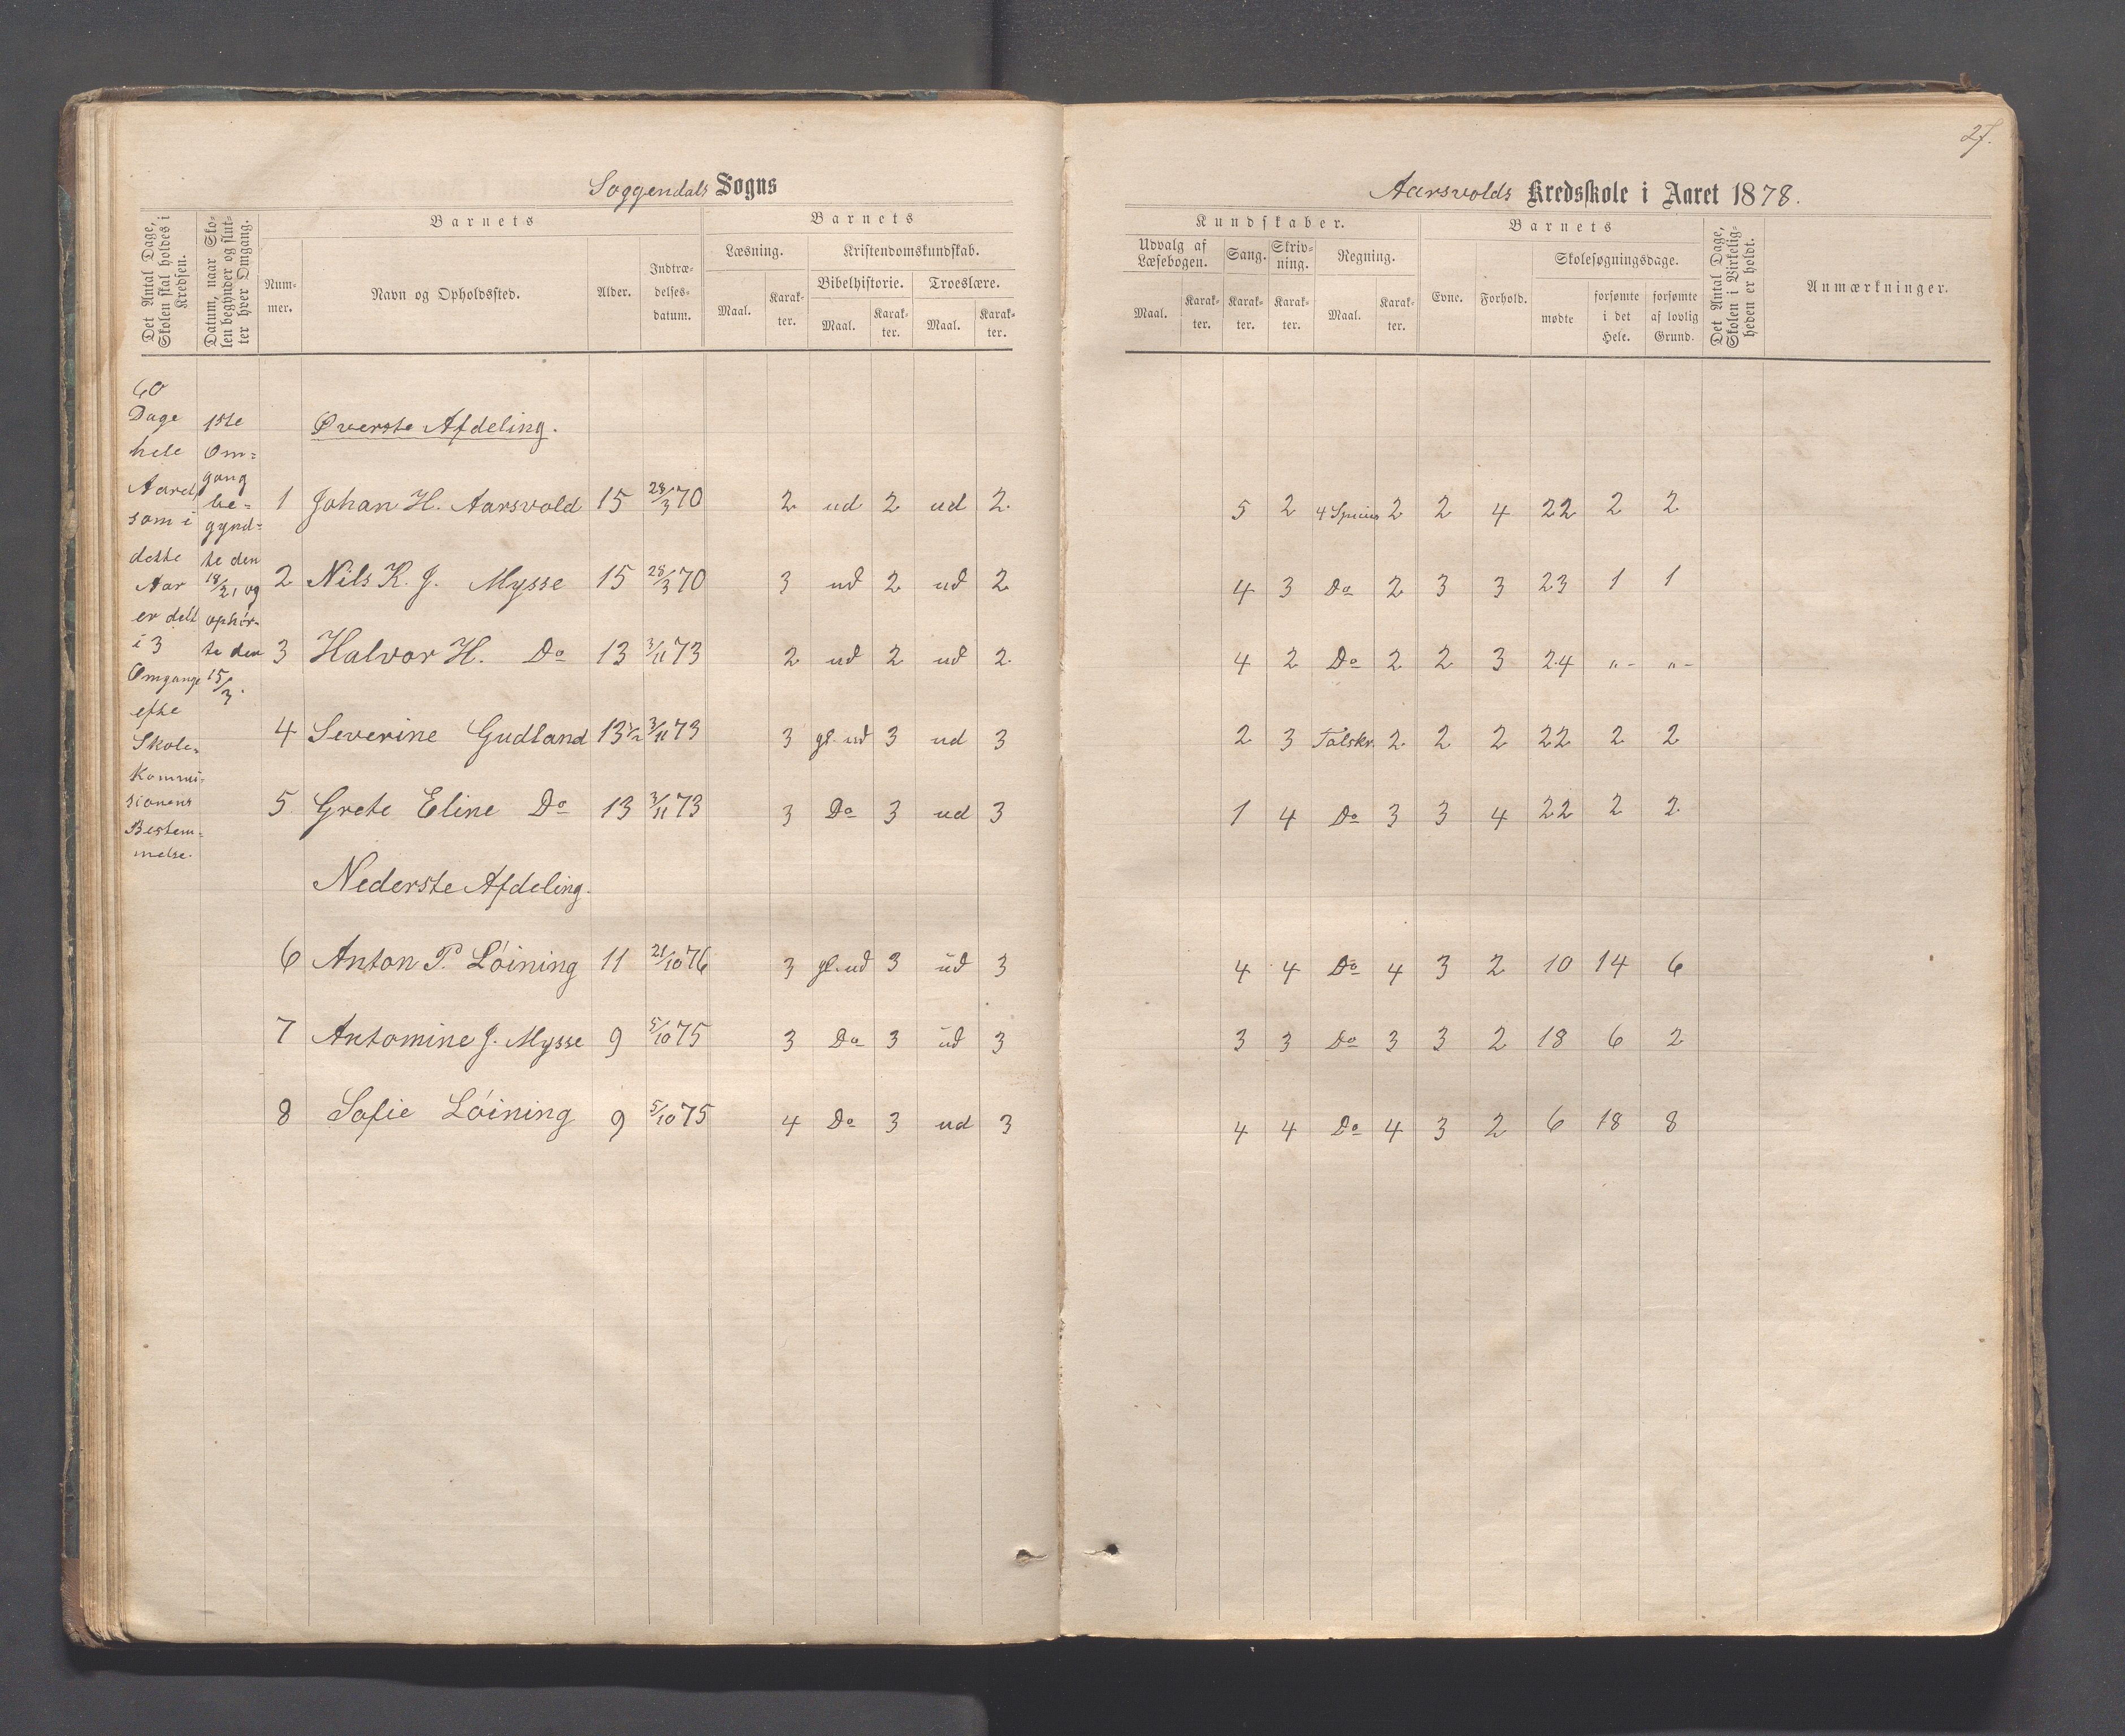 27.
Soggendals Sogns
Aarsvolds Kredsskole i Aaret 1878.
Det Antal Dage, Skolen skal holdes i Kredsen.
Datum, naar Skolen begynder og slutter hver Omgang.
Barnets
Nummer.
Navn og Opholdssted.
Alder.
Indtrædelsesdatum.
Barnets
Læsning.
Maal.
Karakter.
Kristendomskundskab.
Bibelhistorie.
Maal.
Karakter.
Troeslære.
Maal.
Karakter.
Kundskaber.
Udvalg af Læsebogen.
Maal.
Karakter.
Sang.
Karakter.
Skrivning.
Karakter.
Regning.
Maal.
Karakter.
Barnets
Evne.
Forhold.
Skolesøgningsdage.
mødte
forsømte i det Hele.
forsømte af lovlig Grund.
Det Antal Dage, Skolen i Virkeligheden er holdt.
Anmærkninger.
60
Dage
hele
Aaret,
som i
dette
Aar
er delt
i 3
Omgange
efte
Skole-
kommi-
sionens
Bestem-
melse.
1ste
Om-
gang
be-
gynd-
te den
18/2, og
ophør-
te den
15/3.
Øverste Afdeling.
1 Johan H. Aarsvold 15 28/3 70 2 ud 2 ud 2. 5 2 2 2 4 22 2 2
2 Nils K. J. Mysse 15 28/3 70 3 ud 2 ud 2 4 3 Do 2 3 3 23 1 1
3 Halvor H. Do 13 3/11 73 2 ud 2 ud 2. 4 2 Do 2 2 3 24 "- "-
4 Severine Gudland 13½ 3/11 73 3 gl. ud 3 ud 3 2 3 Talskr. 2 2 2 22 2 2
5 Grete Eline Do 13 3/11 73 3 Do 3 ud 3 1 4 Do 3 3 4 22 2 2
Nederste Afdeling.
6 Anton P. Løining 11 21/10 76 3 gl. ud 3 ud 3 4 4 Do 4 3 2 10 14 6
7 Antomine J. Mysse 9 5/10 75 3 Do 3 ud 3 3 3 Do 3 3 2 18 6 2
8 Sofie Løining 9 5/10 75 4 Do 3 ud 3 4 4 Do 4 3 2 6 18 8